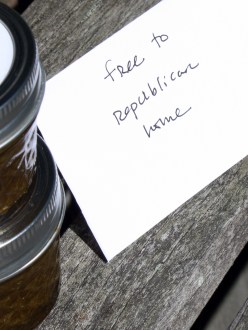 free to
republican
home